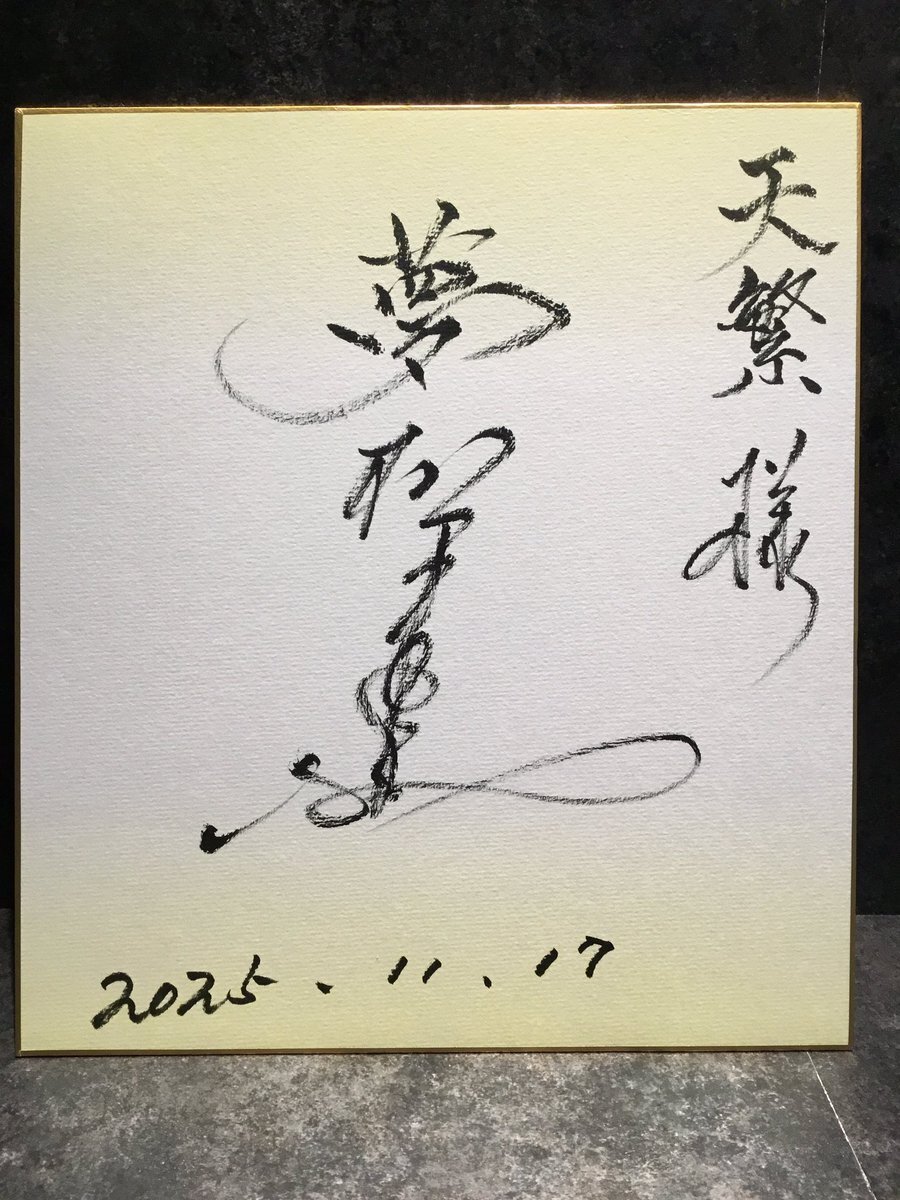 天繁様
夢枕獏
2025.11.17